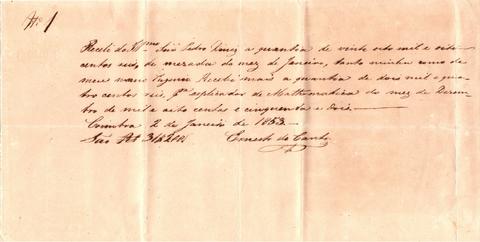 Nº 1
Recebi do Illmo Snr Pedro Diniz a quantia de vinte oito mil e oito
centos reis, de mezadas do mez de Janeiro, tanto minha como de
meu mano Recebi mais a quantia de dois mil e qua
tro centos reis pª explicador de Mathematica do mez de Dezem
bro de mil e oito centos e cincoenta e dois
Coimbra 2 de Janeiro de 1853
São Ernesto do Canto